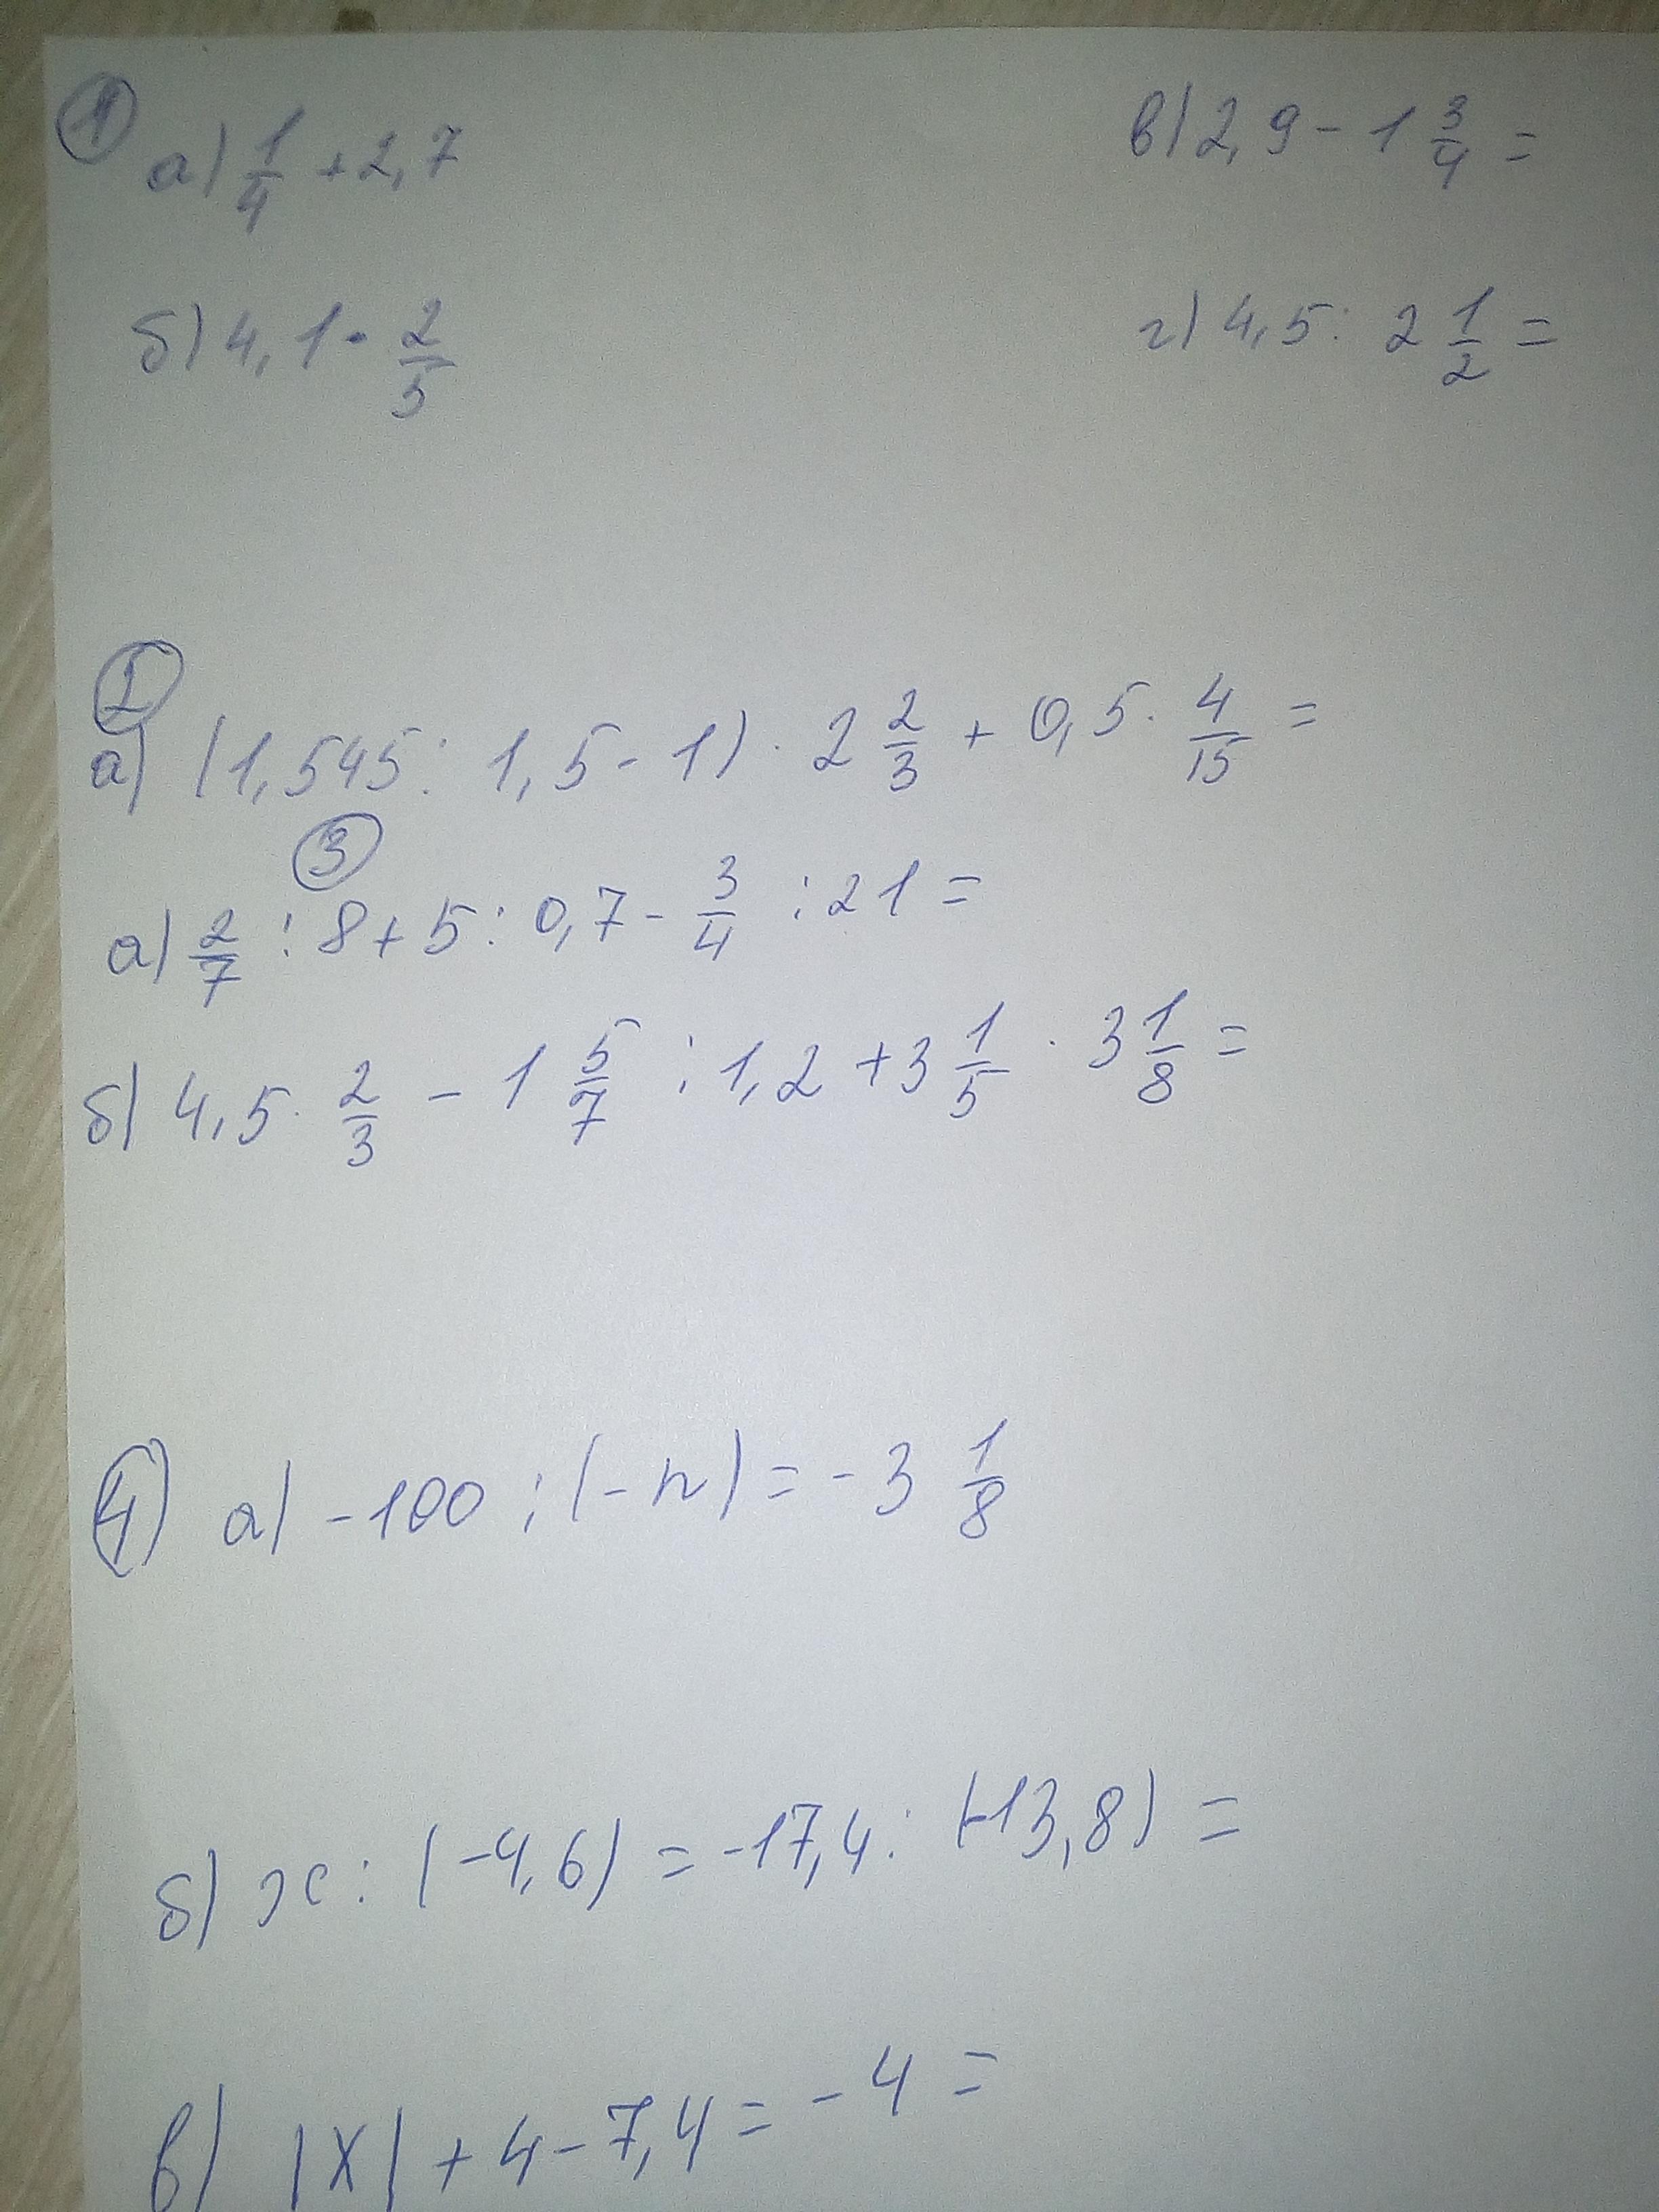 1
а) 1/4 + 2,7
в) 2,9 - 1 3/4 =
б) 4,1 · 2/5
г) 4,5 : 2 1/2 =
2
а) (1,545 : 1,5 - 1) · 2 2/3 + 0,5 · 4/15 =
3
а) 2/7 : 8 + 5 : 0,7 - 3/4 : 21 =
б) 4,5 · 2/3 - 1 5/7 : 1,2 + 3 1/5 · 3 1/8 =
4 а) -100 : (-n) = -3 1/8
б) x : (-4,6) = -17,4 : (-13,8) =
в) |x| + 4 - 7,4 = -4 =